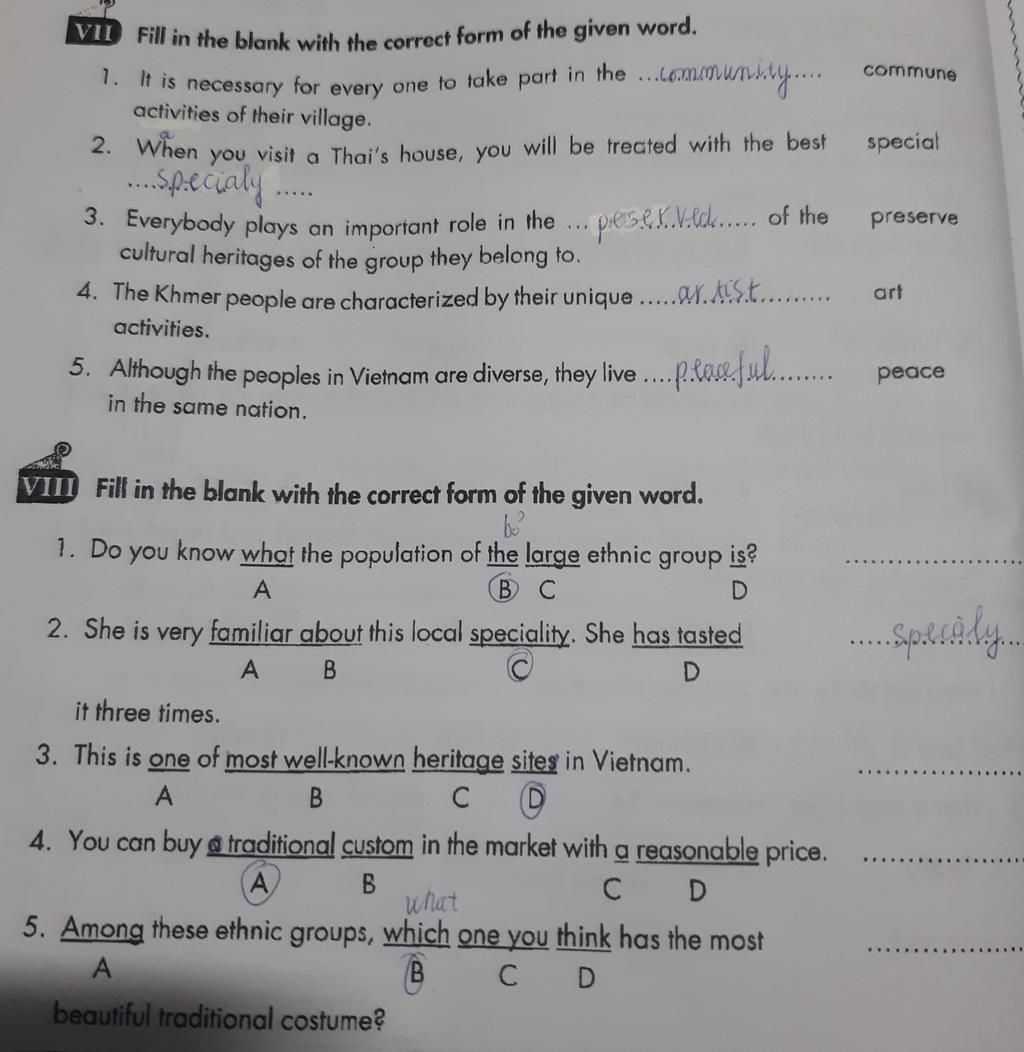 VII Fill in the blank with the correct form of the given word.
1. It is necessary for every one to take part in the ...community.... commune
activities of their village.
a
2. When you visit a Thai's house, you will be treated with the best special
....specialy.....
3. Everybody plays an important role in the ...peserved..... of the preserve
cultural heritages of the group they belong to.
4. The Khmer people are characterized by their unique .....artist......... art
activities.
5. Although the peoples in Vietnam are diverse, they live ....peaceful........ peace
in the same nation.
VIII Fill in the blank with the correct form of the given word.
bỏ
1. Do you know what the population of the large ethnic group is? ....................
A B C D
2. She is very familiar about this local speciality. She has tasted .....specialy...
A B C D
it three times.
3. This is one of most well-known heritage sites in Vietnam. ....................
A B C D
4. You can buy a traditional custom in the market with a reasonable price. ....................
A B C D
what
5. Among these ethnic groups, which one you think has the most ....................
A B C D
beautiful traditional costume?